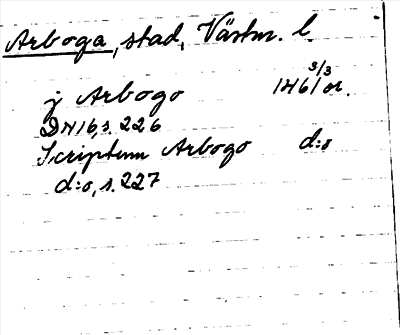 Arboga, stad, Västm. l.
3/3
j Arbogo 1461 or.
DN 16, s. 226
Scriptum Arbogo d:o
d:o, s. 227